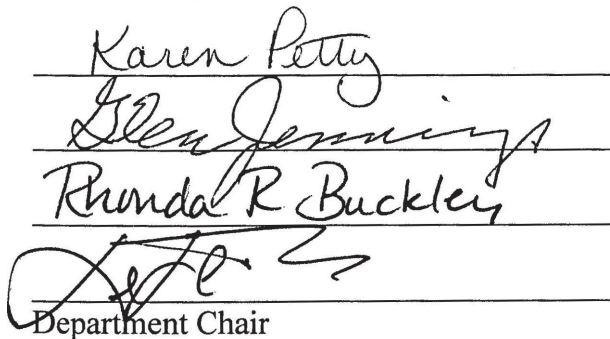 Karen Petty
Glen Jennings
Rhonda R Buckley
Department Chair